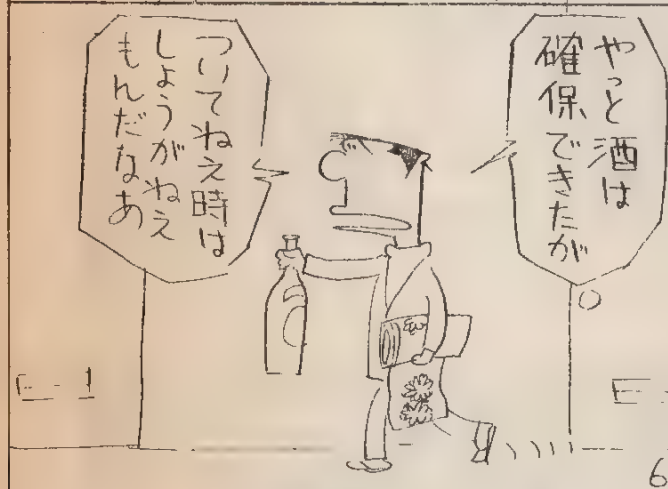 やっと酒は
確保できたが
ついてねえ時は
しょうがねえ
もんだなあ
6